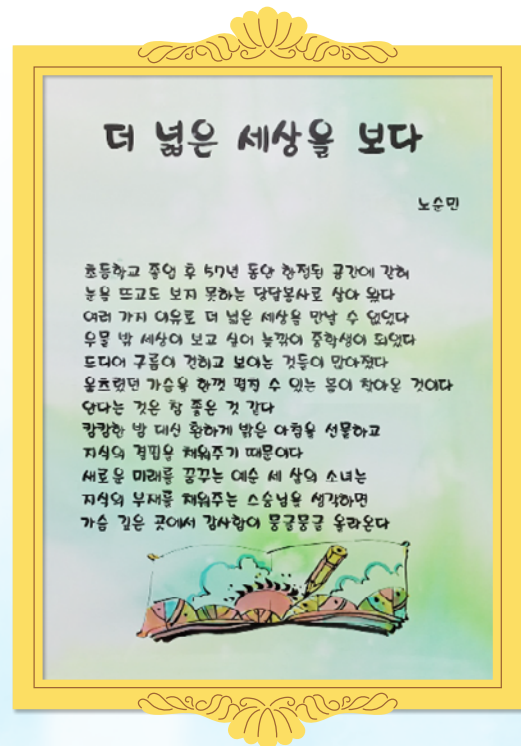 더 넓은 세상을 보다
노순민
초등학교 졸업 후 57년 동안 한정된 공간에 갇혀
눈을 뜨고도 보지 못하는 당달봉사로 살아 왔다
여러 가지 이유로 더 넓은 세상을 만날 수 없었다
우물 밖 세상이 보고 싶어 늦깎이 중학생이 되었다
드디어 구름이 걷히고 보이는 것들이 많아졌다
움츠렸던 가슴을 한껏 펼칠 수 있는 봄이 찾아온 것이다
안다는 것은 참 좋은 것 같다
캄캄한 밤 대신 환하게 밝은 아침을 선물하고
지식의 결핍을 채워주기 때문이다
새로운 미래를 꿈꾸는 예순 세 살의 소녀는
지식의 부재를 채워주는 스승님을 생각하면
가슴 깊은 곳에서 감사함이 뭉글뭉글 올라온다